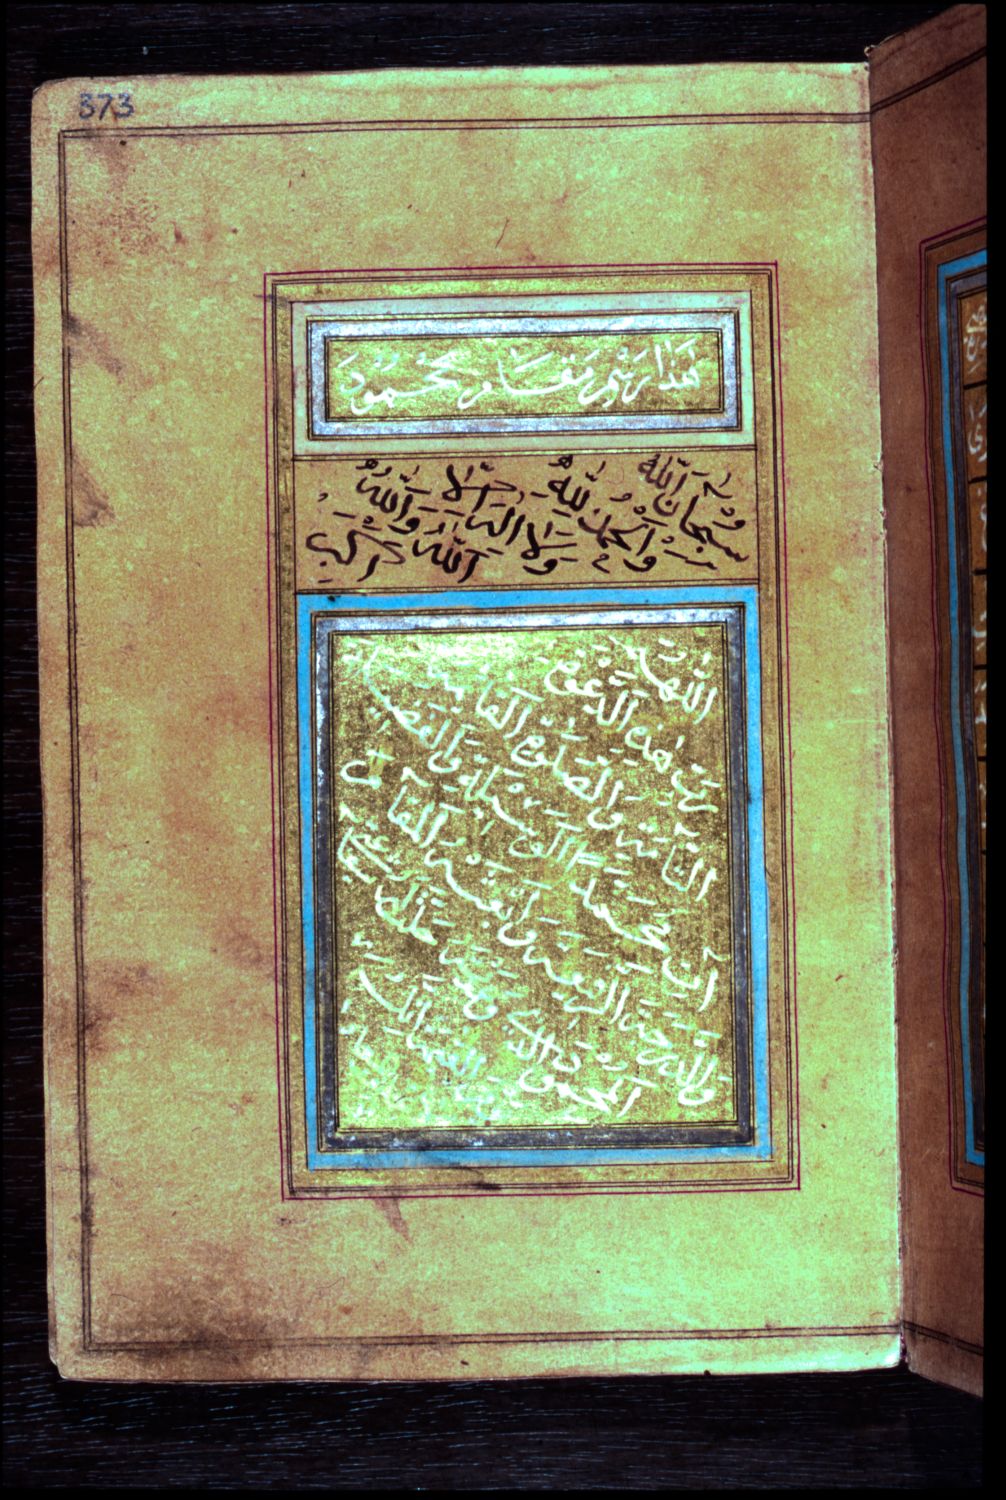 373
هَذَا رَسْمِ مَقَامِ مَحْمُودَ
سُبْحَانَ اللّٰهِ
وَالْحَمْدُ لِلّٰهِ
وَلَا اِلٰهَ اِلَّا اللّٰهُ وَاللّٰهُ اَكْبَرُ
اَللّٰهُمَّ
رَبَّ هٰذِهِ الدَّعْوَةِ
التَّامَّةِ وَالصَّلٰوةِ الْقَائِمَةِ
اٰتِ مُحَمَّدًا الْوَسِيلَةَ وَالْفَضِيلَةَ
وَالدَّرَجَةَ الرَّفِيعَةَ وَابْعَثْهُ الْمَقَامَ
الْمَحْمُودَ الَّذِي وَعَدْتَهُ
اِنَّكَ